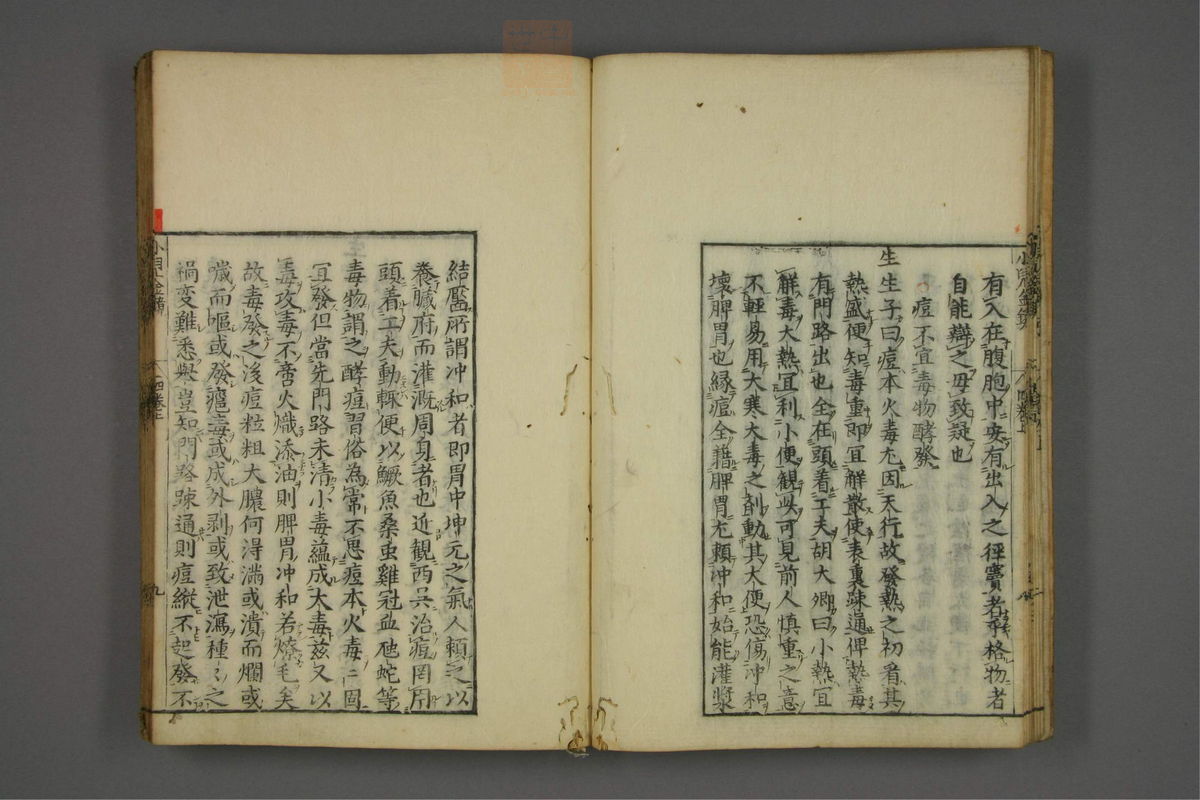 有入在腹胞中安有出入之徑竇者乎格物者
自能辯之毋致疑也
痘不宜毒物酵發
生生子曰痘本火毒尢因天行故發熱之初看其
熱盛便知毒重即冝觧散使表裏踈通俾熱毒
有門路出也全在頭着工夫胡大卿曰小熱冝
觧毒大熱冝利小便觀此可見前人慎重之意
不輕易用大寒大毒之剤動其大便恐傷冲和
壞脾胃也縁痘全藉脾胃尢頼冲和始能灌漿
結靨所謂冲和者即胃中坤元之氣人頼之以
養臓府而灌溉周身者也近觀西呉治痘罔
頭着工夫動輙便以鱖魚桑虫雞冠血虺蛇等
毒物謂之酵痘習俗為常不思痘本火毒二固
冝發但當先門路未清小毒蘊成大毒兹又以
毒攻毒不啻火熾添油則脾胃冲和若燎毛矣
故毒發之後痘粒粗大膿何淂滿或潰而爛或
噦而嘔或發癰毒或成外剥或致泄瀉種〻之
禍変難悉擧豈知門路踈通則痘縱不起發不